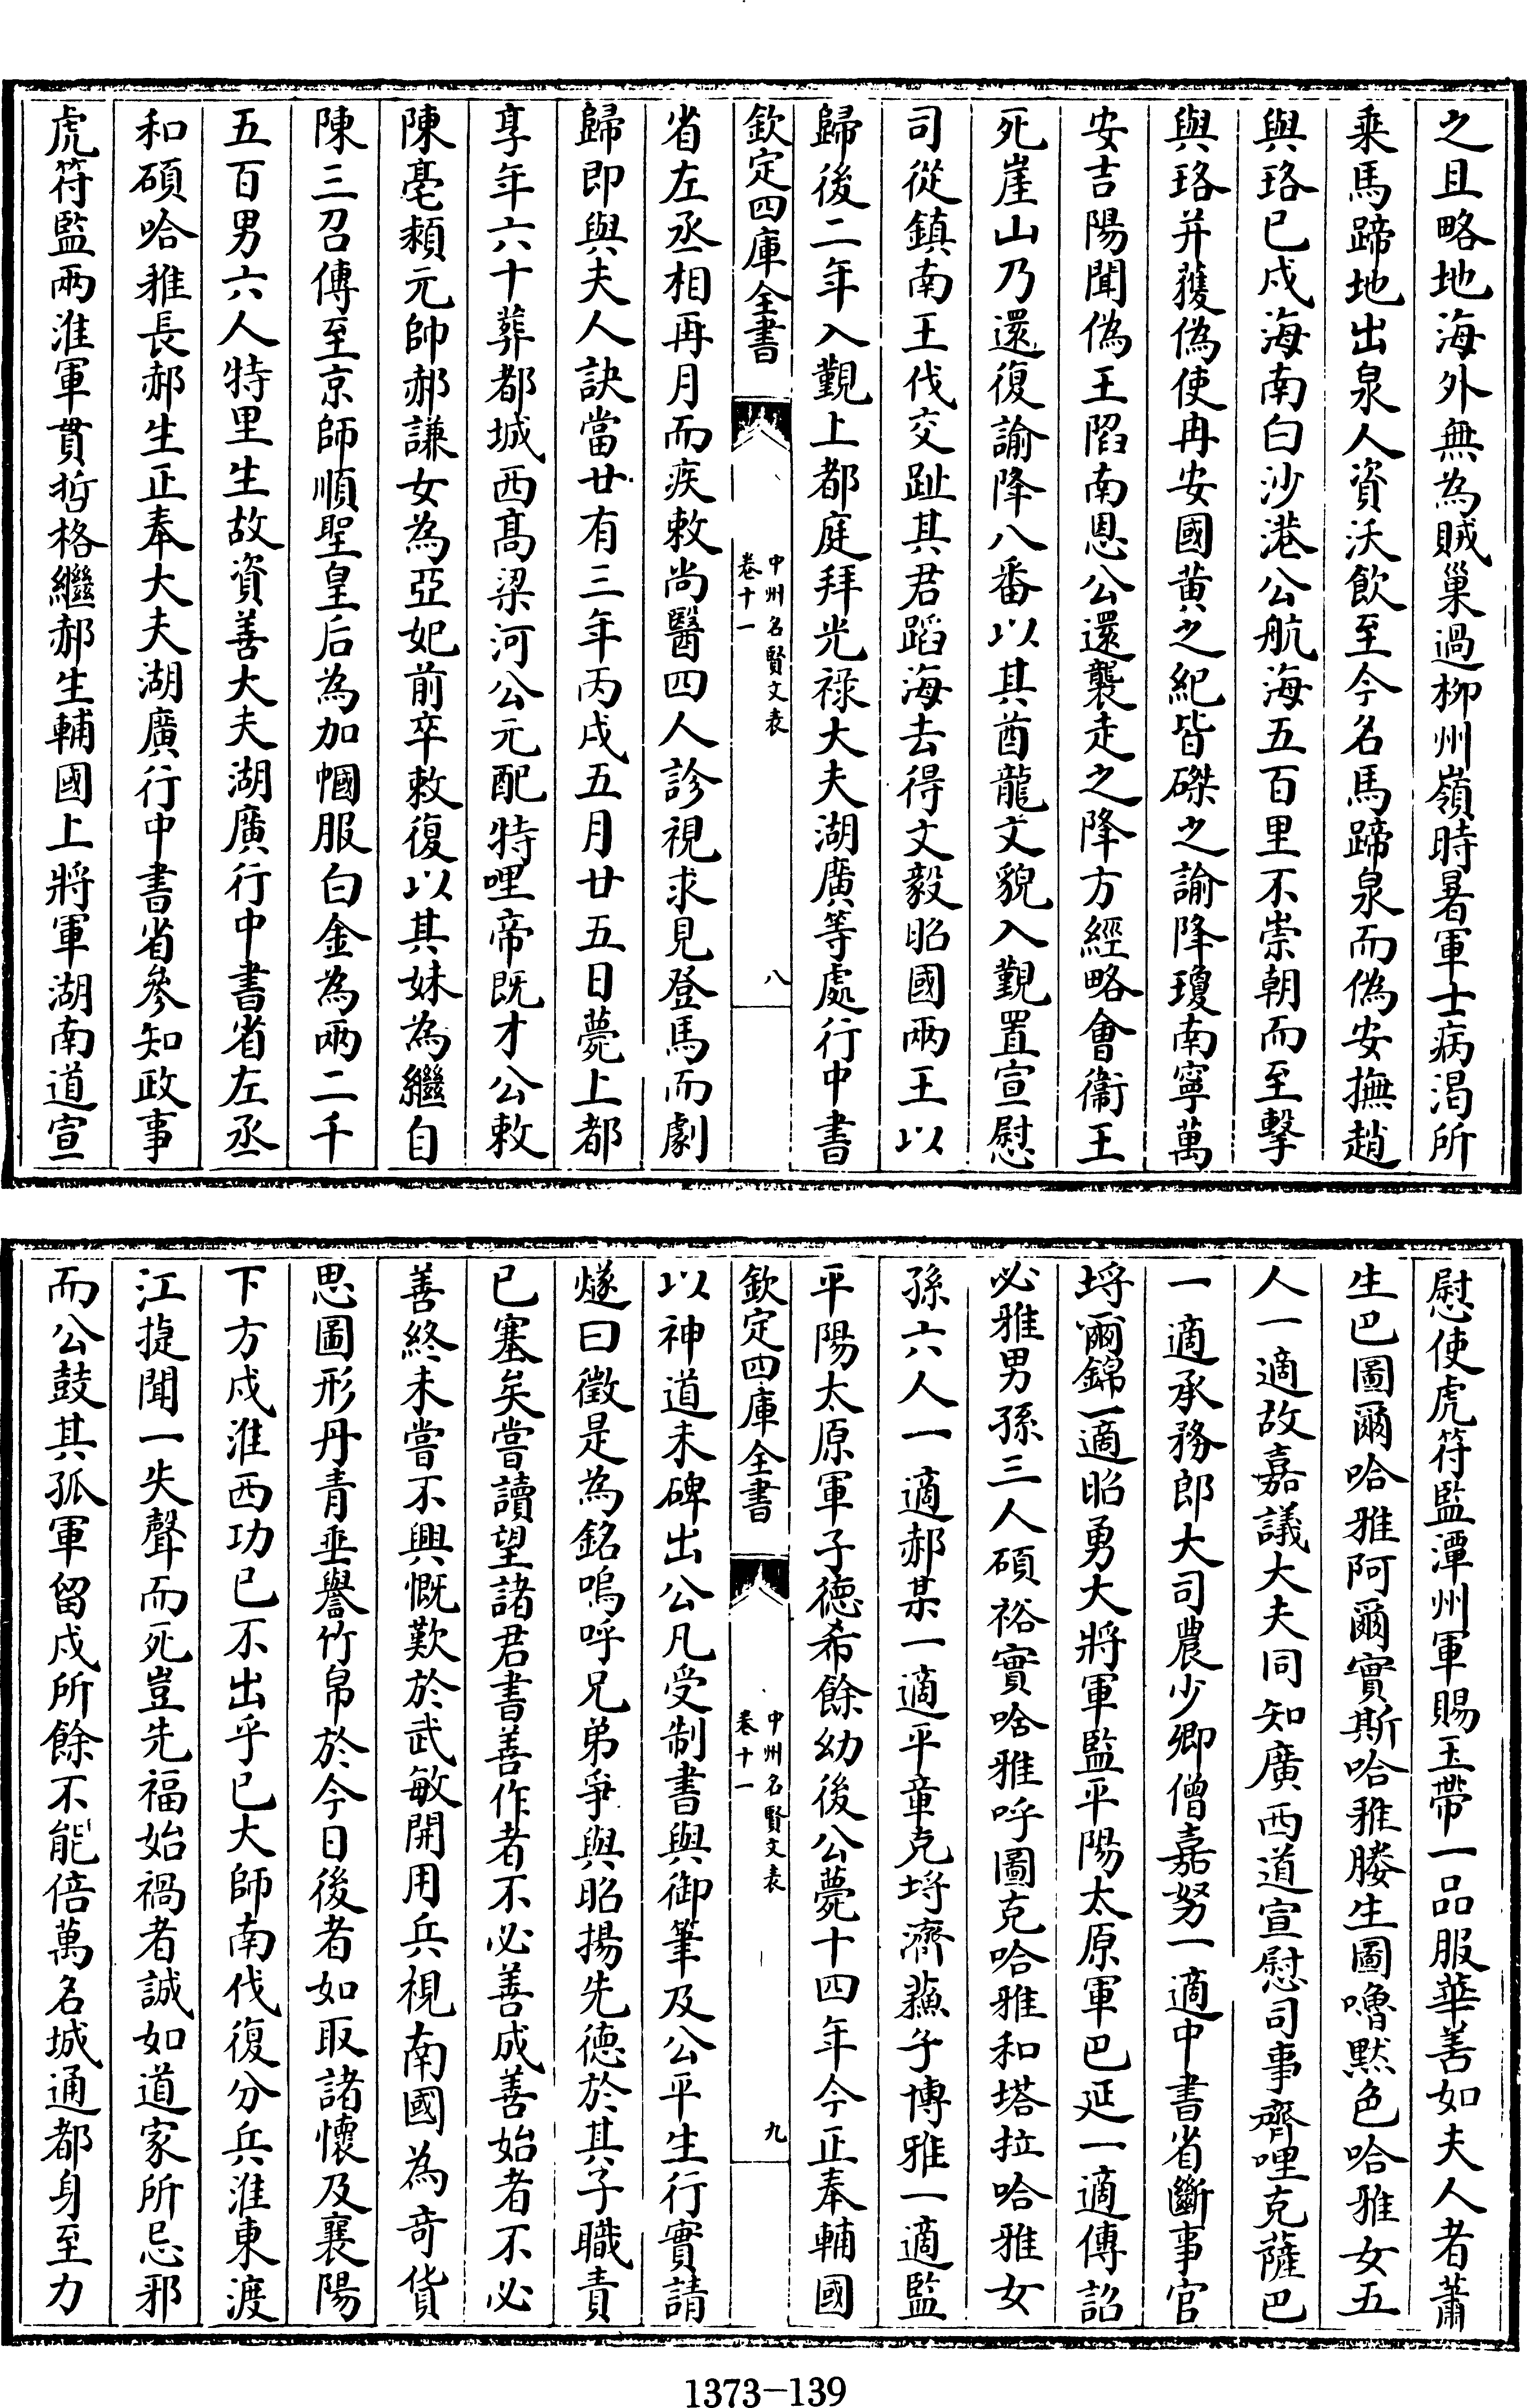 之且略地海外無為賊巢過柳州嶺時暑軍士病渴所
乗馬蹄地出泉人資沃飲至今名馬蹄泉而偽安撫趙
與珞已戍海南白沙港公航海五百里不崇朝而至擊
與珞并獲偽使冉安國黄之紀皆磔之諭降瓊南寧萬
安吉陽聞偽王陷南恩公還襲走之降方經略會衛王
死崖山乃還復諭降八番以其酋龍文貌入覲置宣慰
司從鎮南王伐交趾其君蹈海去得文毅昭國兩王以
歸後二年入覲上都庭拜光禄大夫湖廣等處行中書
欽定四庫全書
中州名賢文表
卷十一
八
省左丞相再月而疾敕尚醫四人診視求見登馬而劇
歸即與夫人訣當廿有三年丙戌五月廿五日薨上都
享年六十葬都城西髙梁河公元配特哩帝既才公敕
陳亳潁元帥郝謙女為亞妃前卒敕復以其妹為繼自
陳三召傳至京師順聖皇后為加帼服白金為兩二千
五百男六人特里生故資善大夫湖廣行中書省左丞
和碩哈雅長郝生正奉大夫湖廣行中書省參知政事
虎符監兩淮軍貫哲格繼郝生輔國上將軍湖南道宣
慰使虎符監潭州軍賜玉帶一品服華善如夫人者蕭
生巴圖爾哈雅阿爾實斯哈雅媵生圖嚕黙色哈雅女五
人一適故嘉議大夫同知廣西道宣慰司事齊哩克薩巴
一適承務郎大司農少卿僧嘉努一適中書省斷事官
埒爾錦一適昭勇大將軍監平陽太原軍巴延一適傳詔
必雅男孫三人碩裕實哈雅呼圖克哈雅和塔拉哈雅女
孫六人一適郝某一適平章克埒濟蘓子博雅一適監
平陽太原軍子德希餘幼後公薨十四年今正奉輔國
欽定四庫全書
中州名賢文表
卷十一
九
以神道未碑出公凡受制書與御筆及公平生行實請
燧曰徵是為銘嗚呼兄弟爭與昭揚先德於其子職責
已塞矣嘗讀望諸君書善作者不必善成善始者不必
善終未嘗不興慨歎於武敏開用兵視南國為竒貨
思圖形丹青垂譽竹帛於今日後者如取諸懷及襄陽
下方戍淮西功已不出乎已大師南伐復分兵淮東渡
江捷聞一失聲而死豈先福始禍者誠如道家所忌邪
而公鼓其孤軍留戍所餘不能倍萬名城通都身至力
1373-139